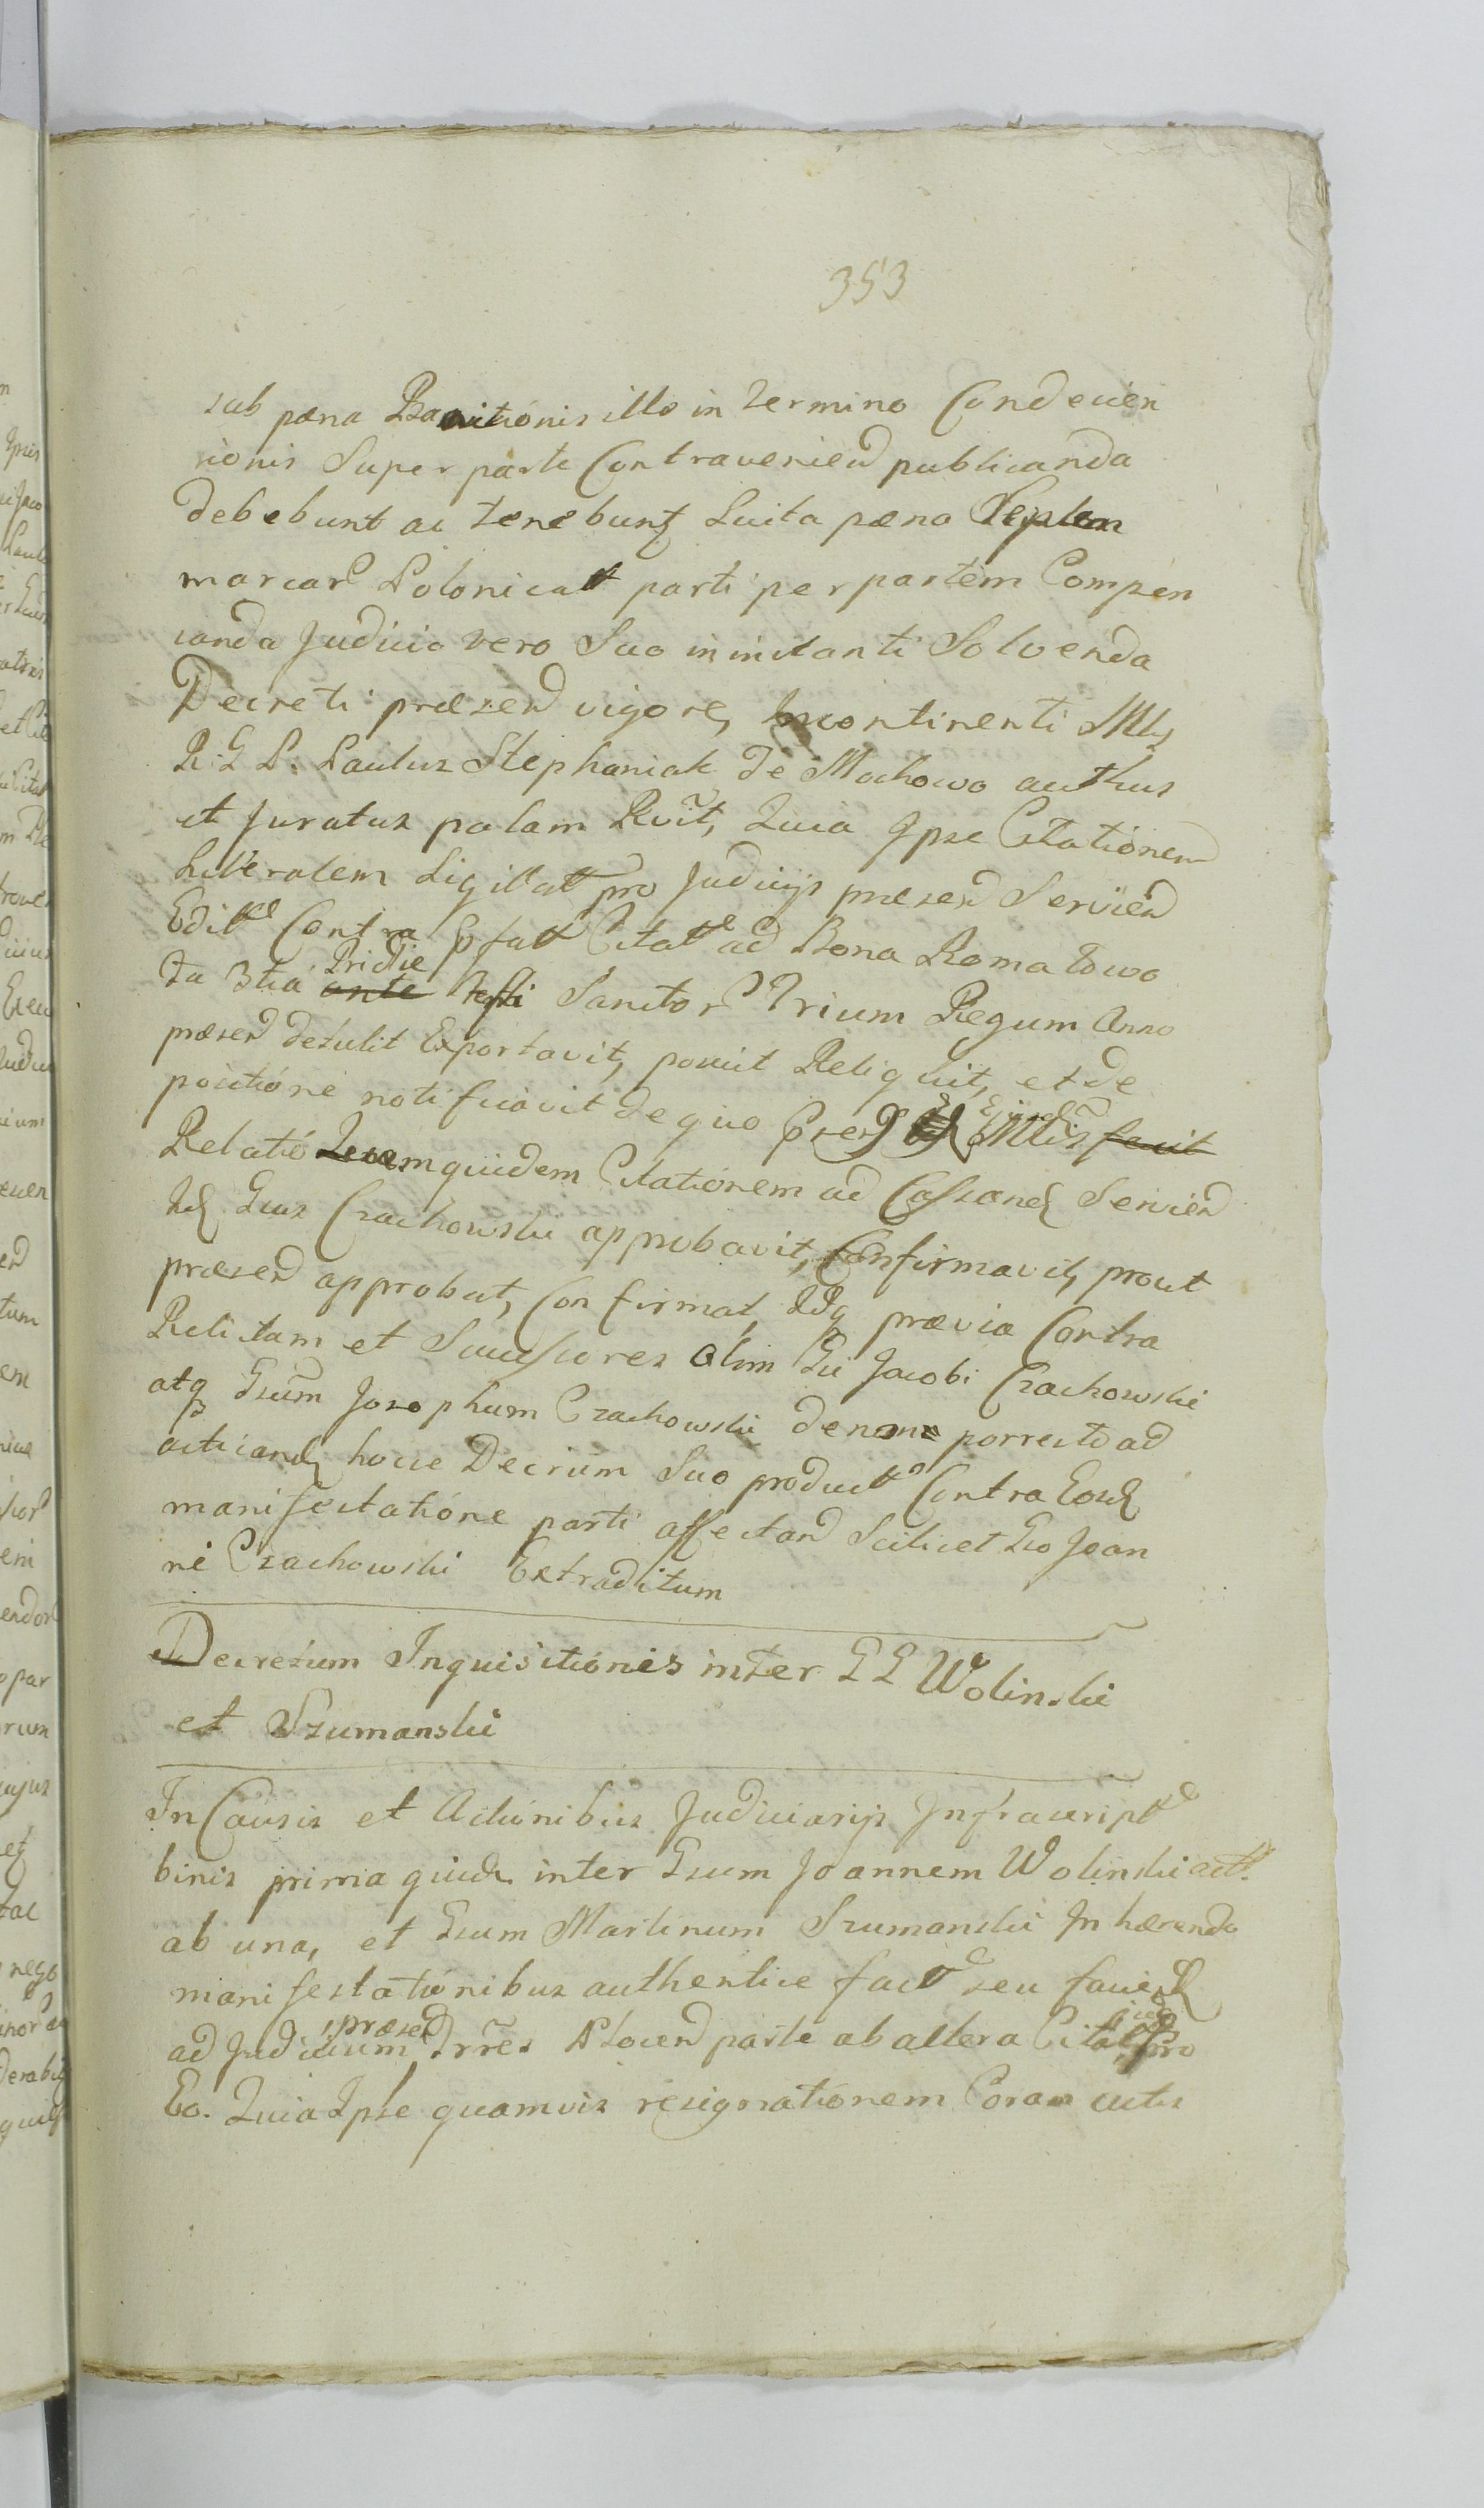 353
sub pæna Bannitionis illo in termino Condecen
sionis Super parte Contraveniend publicanda
debebunt ac tenebunt Luita pæna Septem
marcar Polonicat parti per partem Compen
sanda Judicio vero Suo in instanti Solvenda
Decreti præsend vigore, Incontinenti Mlis
R: G P. Paulus Stephaniak de Mochowo authus
et Juratus palam Rvit, Quia Ipse Citationem
Liberalem Sigillat pro Judicijs præsend Serviend
Edit Contra pfat Citat ad Bona Romatowo
fa 3tia ante Pridie festi Sanctor Trium Regum Anno
præsend detulit Exportavit, posuit Reliquit, et de
positione notificavit de quo Ejusd Mlis fecit
Relatio Quamquidem Citationem ad Cassand Serviend
Gsus Czachowski approbavit, Confirmavit, prout
præsend approbat, Confirmat, Idq prævia Contra
Relictam et Successores olim Gsi Jacobi Czachowski
atq Gsum Josephum Czachowski de nome porrecto ad
acticand hocce Decrum Suo product Contra Eosd
manifestatione parti affectand Scilicet Gso Joan
ni Czachowski Extraditum
Decretum Inquisitionis inter G G Wolinski
et Szumanski
In Causis et Actionibus Judiciarijs Infrascript
binis prima quidem inter Gsum Joannem Wolinski act.
ab una, et Gsum Martinum Szumanski In hærendo
manifestationibus authentice fact seu faciend
ad Judicium præsend Trres Plocend parte ab altera Citat pro
Eo. Quia Ipse quamvis resignationem Coram actis